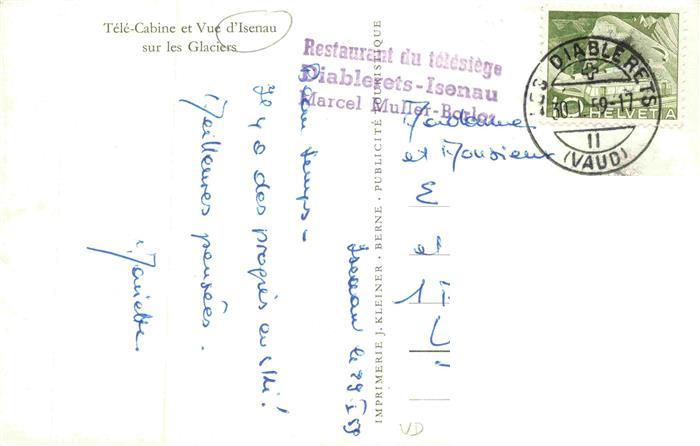 Télé-Cabine et Vue d'Isenau
sur les Glaciers
Restaurant du télésiège
Diablerets-Isenau
Marcel Muller-Borloz
HELVETIA
DIABLERETS
30. 59-17
II
(VAUD)
IMPRIMERIE J. KLEINER - BERNE - PUBLICITÉ TOURISTIQUE
Isenau le 29 I 59
Beau temps -
Il y a des progrès en ski!
Meilleures pensées.
Mariette
Madame
et Monsieur
E et
VD